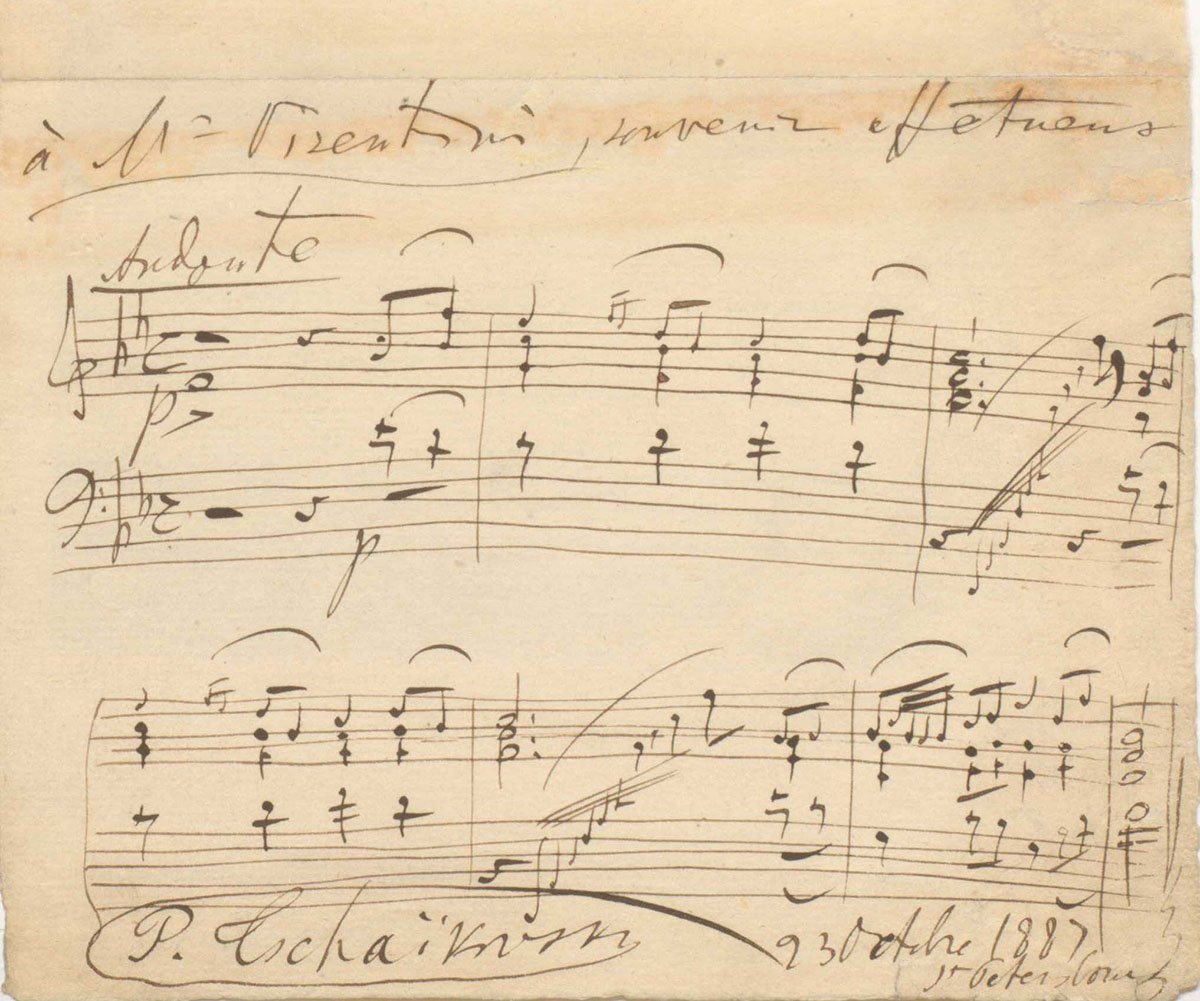 à Mr Vizentini, souvenir affetueux
Andante
p
p
P. Tschaïkovsky
23 Octobre 1887
St Petersbourg